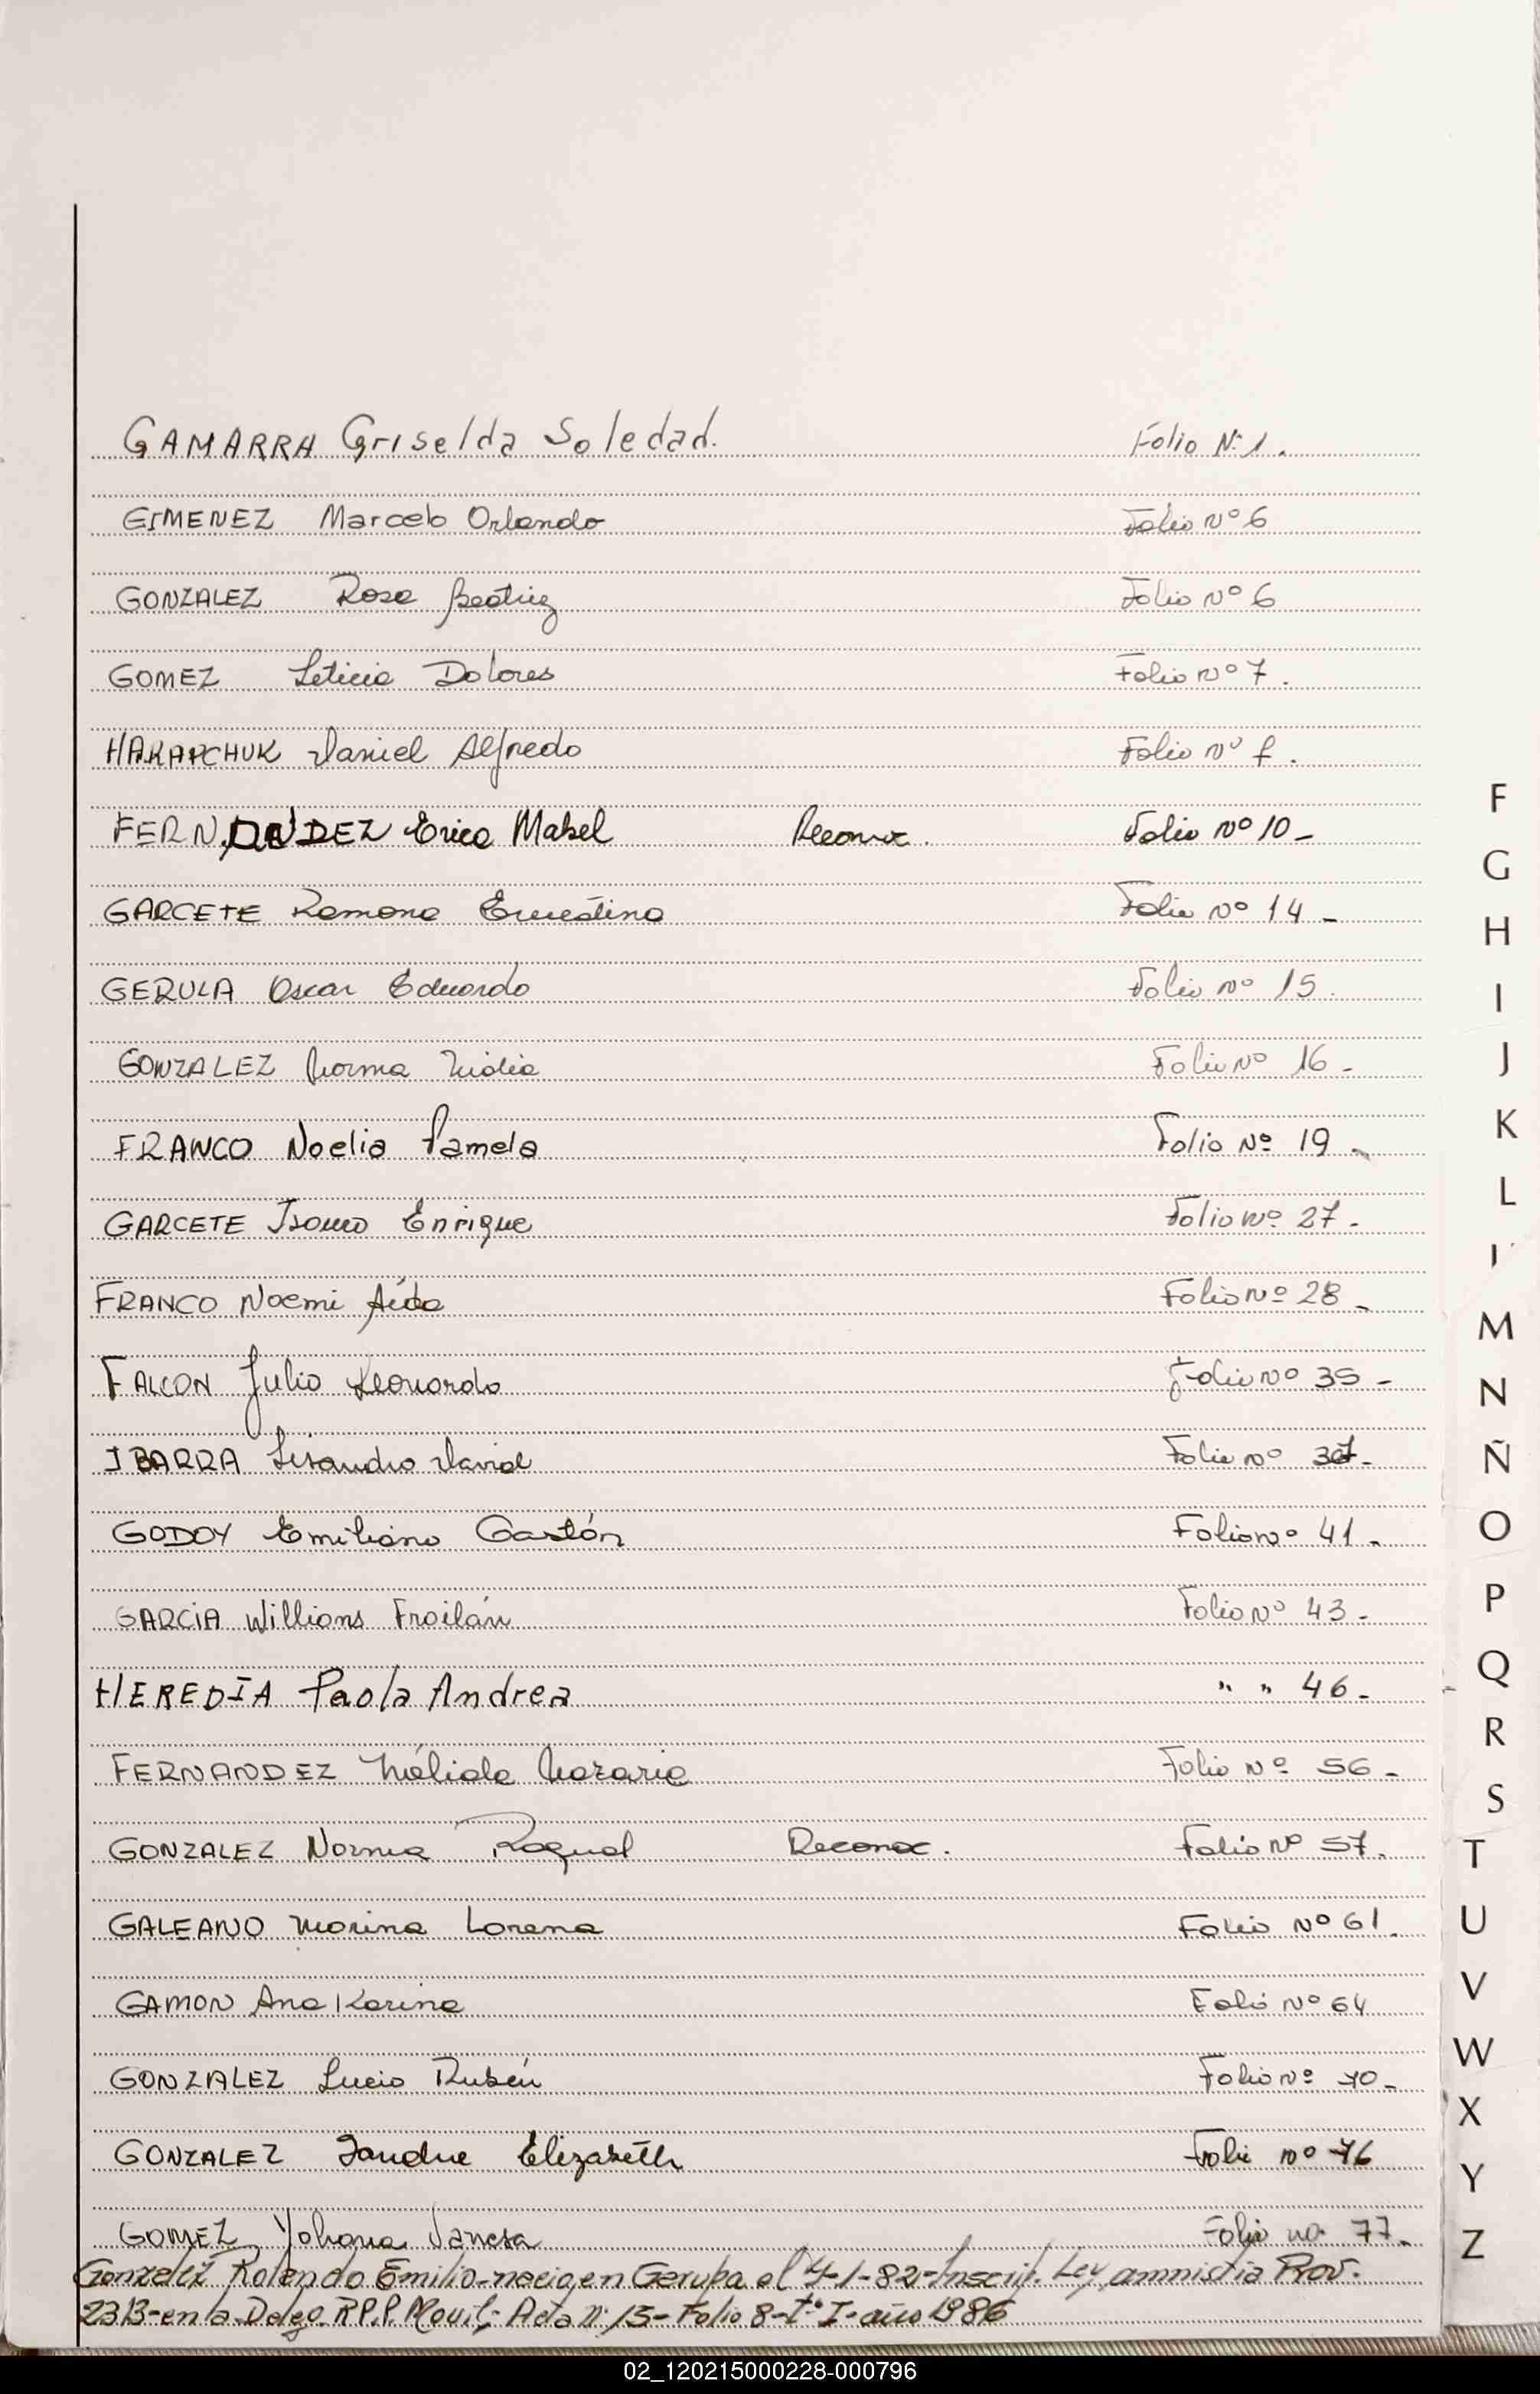 GAMARRA Griselda Soledad. Folio Nº 1.
GIMENEZ Marcelo Orlando Folio Nº 6
GONZALEZ Rosa Beatriz Folio Nº 6
GOMEZ Leticia Dolores Folio Nº 7.
HAKAPCHUK Daniel Alfredo Folio Nº
FERNANDEZ Erica Mabel Reconoc. Folio Nº 10-
GARCETE Ramona Ernestina Folio Nº 14-
GERULA Oscar Eduardo Folio Nº 15.
GONZALEZ Norma Lidia Folio Nº 16-
FRANCO Noelia Pamela Folio Nº 19-
GARCETE Enrique Folio Nº 27-
FRANCO Noemi Aída Folio Nº 28-
FALCON Julio Leonardo Folio Nº 35-
IBARRA Lisandro David Folio Nº 37-
GODOY Emiliano Gastón Folio Nº 41-
GARCIA Willians Froilán Folio Nº 43-
HEREDIA Paola Andrea " " 46-
FERNANDEZ Nélida Nazaria Folio Nº 56-
GONZALEZ Norma Raquel Reconoc. Folio Nº 57.
GALEANO Marina Lorena Folio Nº 61.
GAMON Ana Karina Folio Nº 64
GONZALEZ Lucio Rubén Folio Nº 70-
GONZALEZ Sandra Elizabeth Folio Nº 76
GOMEZ Yohana Vanesa Folio Nº 77.
Gonzalez Rolando Emilio-nacio en Garupa el 4-1-82-Inscrip. Ley amnistia Prov.
2313-en la Deleg. R.P.P. Movil- Acta Nº 15- Folio 8-Tº I-año 1986
F
G
H
I
J
K
L
M
N
Ñ
O
P
Q
R
S
T
U
V
W
X
Y
Z
02_120215000228-000796